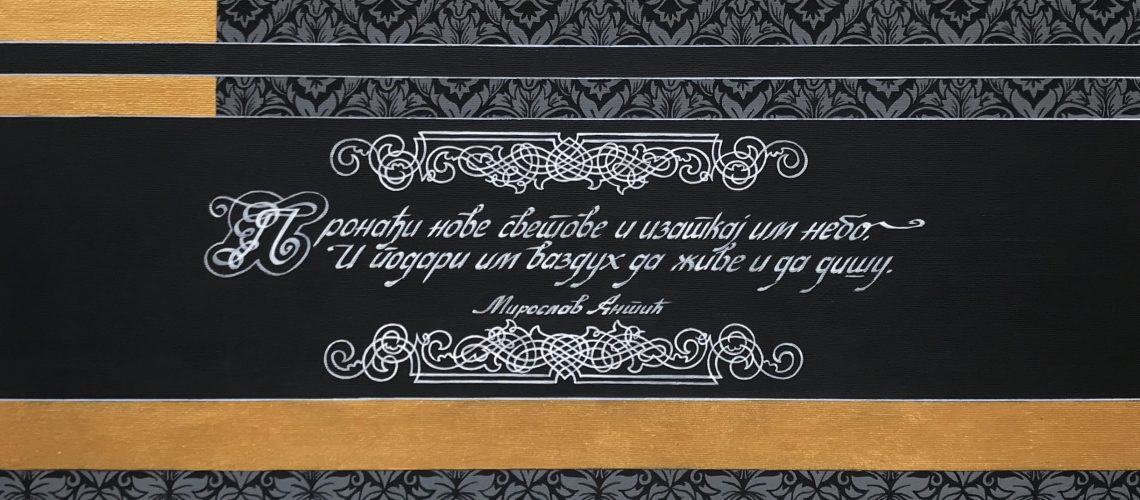 Пронађи нове светове и изаткај им небо.
И подари им ваздух да живе и да дишу.
Мирослав Антић